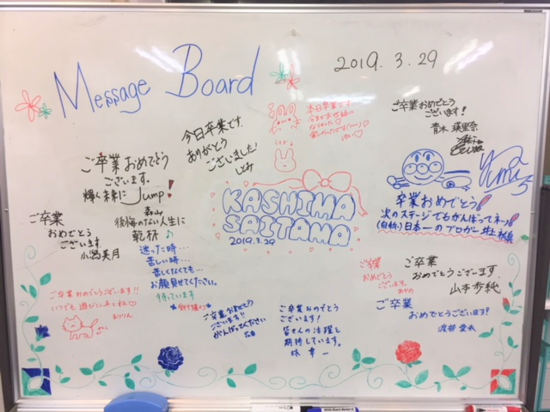 Message Board
2019.3.29
今日卒業です
ありがとう
ございました!
本日卒業です
ご卒業おめでとう
ございます!
青木 瑛里奈
ご卒業おめでとう
ございます。
輝く未来に Jump!
森山
後悔のない人生に
乾杯♪
ご卒業
おめでとう
ございます
小沼美月
迷った時…
苦しい時…
苦しくなくても…
お腹見せてください。
待っています
KASHIMA
SAITAMA
2019.3.29
卒業おめでとう!
次のステージでもがんばってネ!
(自称)日本一のブロガー
ご卒業
おめでとう
ございます。
ご卒業
おめでとうございます
山本歩純
ご卒業
おめでとうございます!
渡部 愛永
ご卒業おめでとうございます!!
いつでも遊びにきてね
ご卒業おめでとう
ございます!!
がんばってください
ご卒業おめでとう
ございます!
皆さんの活躍を
期待しています。
林 幸一